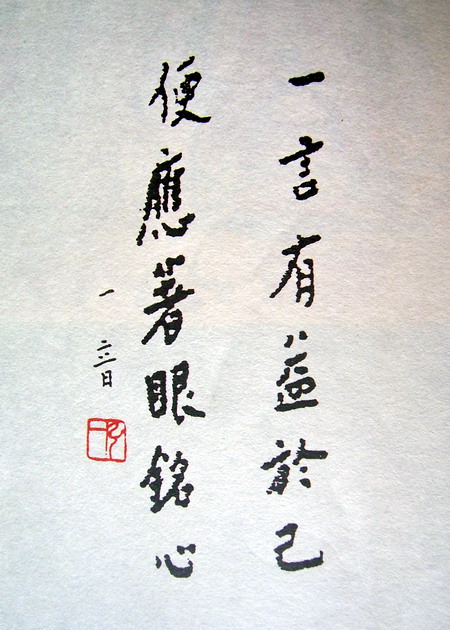 一言有益於己
便應著眼銘心
一音
弘一